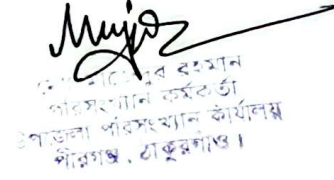 রহমান
পরিসংখ্যান কর্মকর্তা
উপজেলা পরিসংখ্যান কার্যালয়
পীরগঞ্জ, ঠাকুরগাঁও।